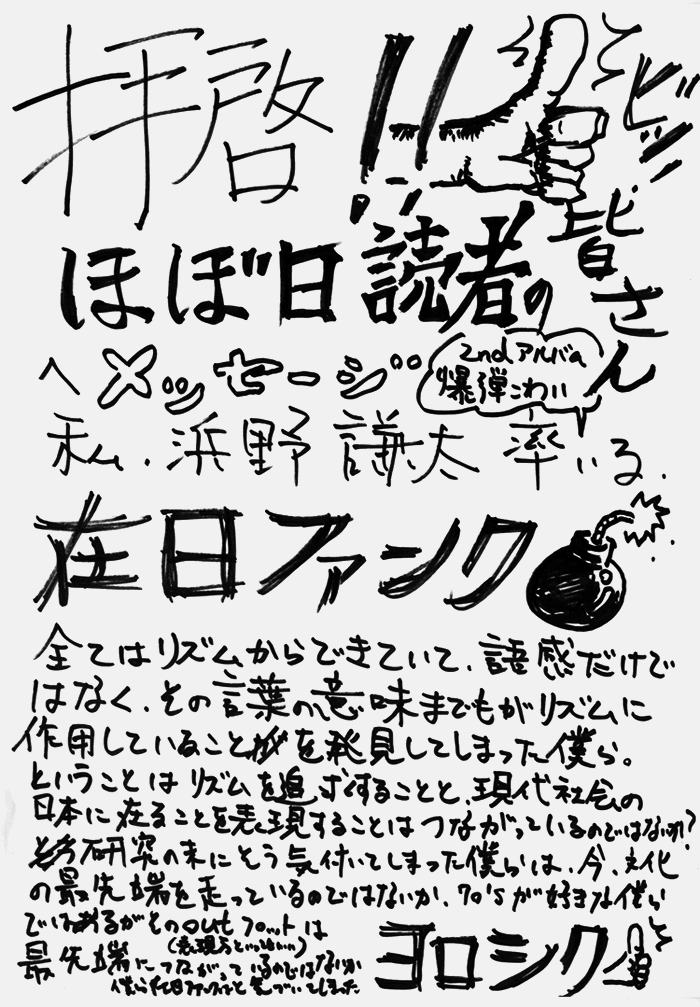 拝啓!!
ビビッ
ほぼ日読者の皆さん
へメッセージ
2ndアルバム
爆弾こわい
私、浜野謙太率いる、
在日ファンク
全てはリズムからできていて、語感だけで
はなく、その言葉の意味までもがリズムに
作用していることを発見してしまった僕ら。
ということはリズムを追求することと、現代社会の
日本に在ることを表現することはつながっているのではないか?
研究の末にそう気付いてしまった僕らは、今、文化
の最先端を走っているのではないか、70'sが好きな僕ら
ではあるがそのoutプットは
(表現方といいい)
最先端につながっているのではないか
僕ら在日ファンクと気づいてしまった
ヨロシク